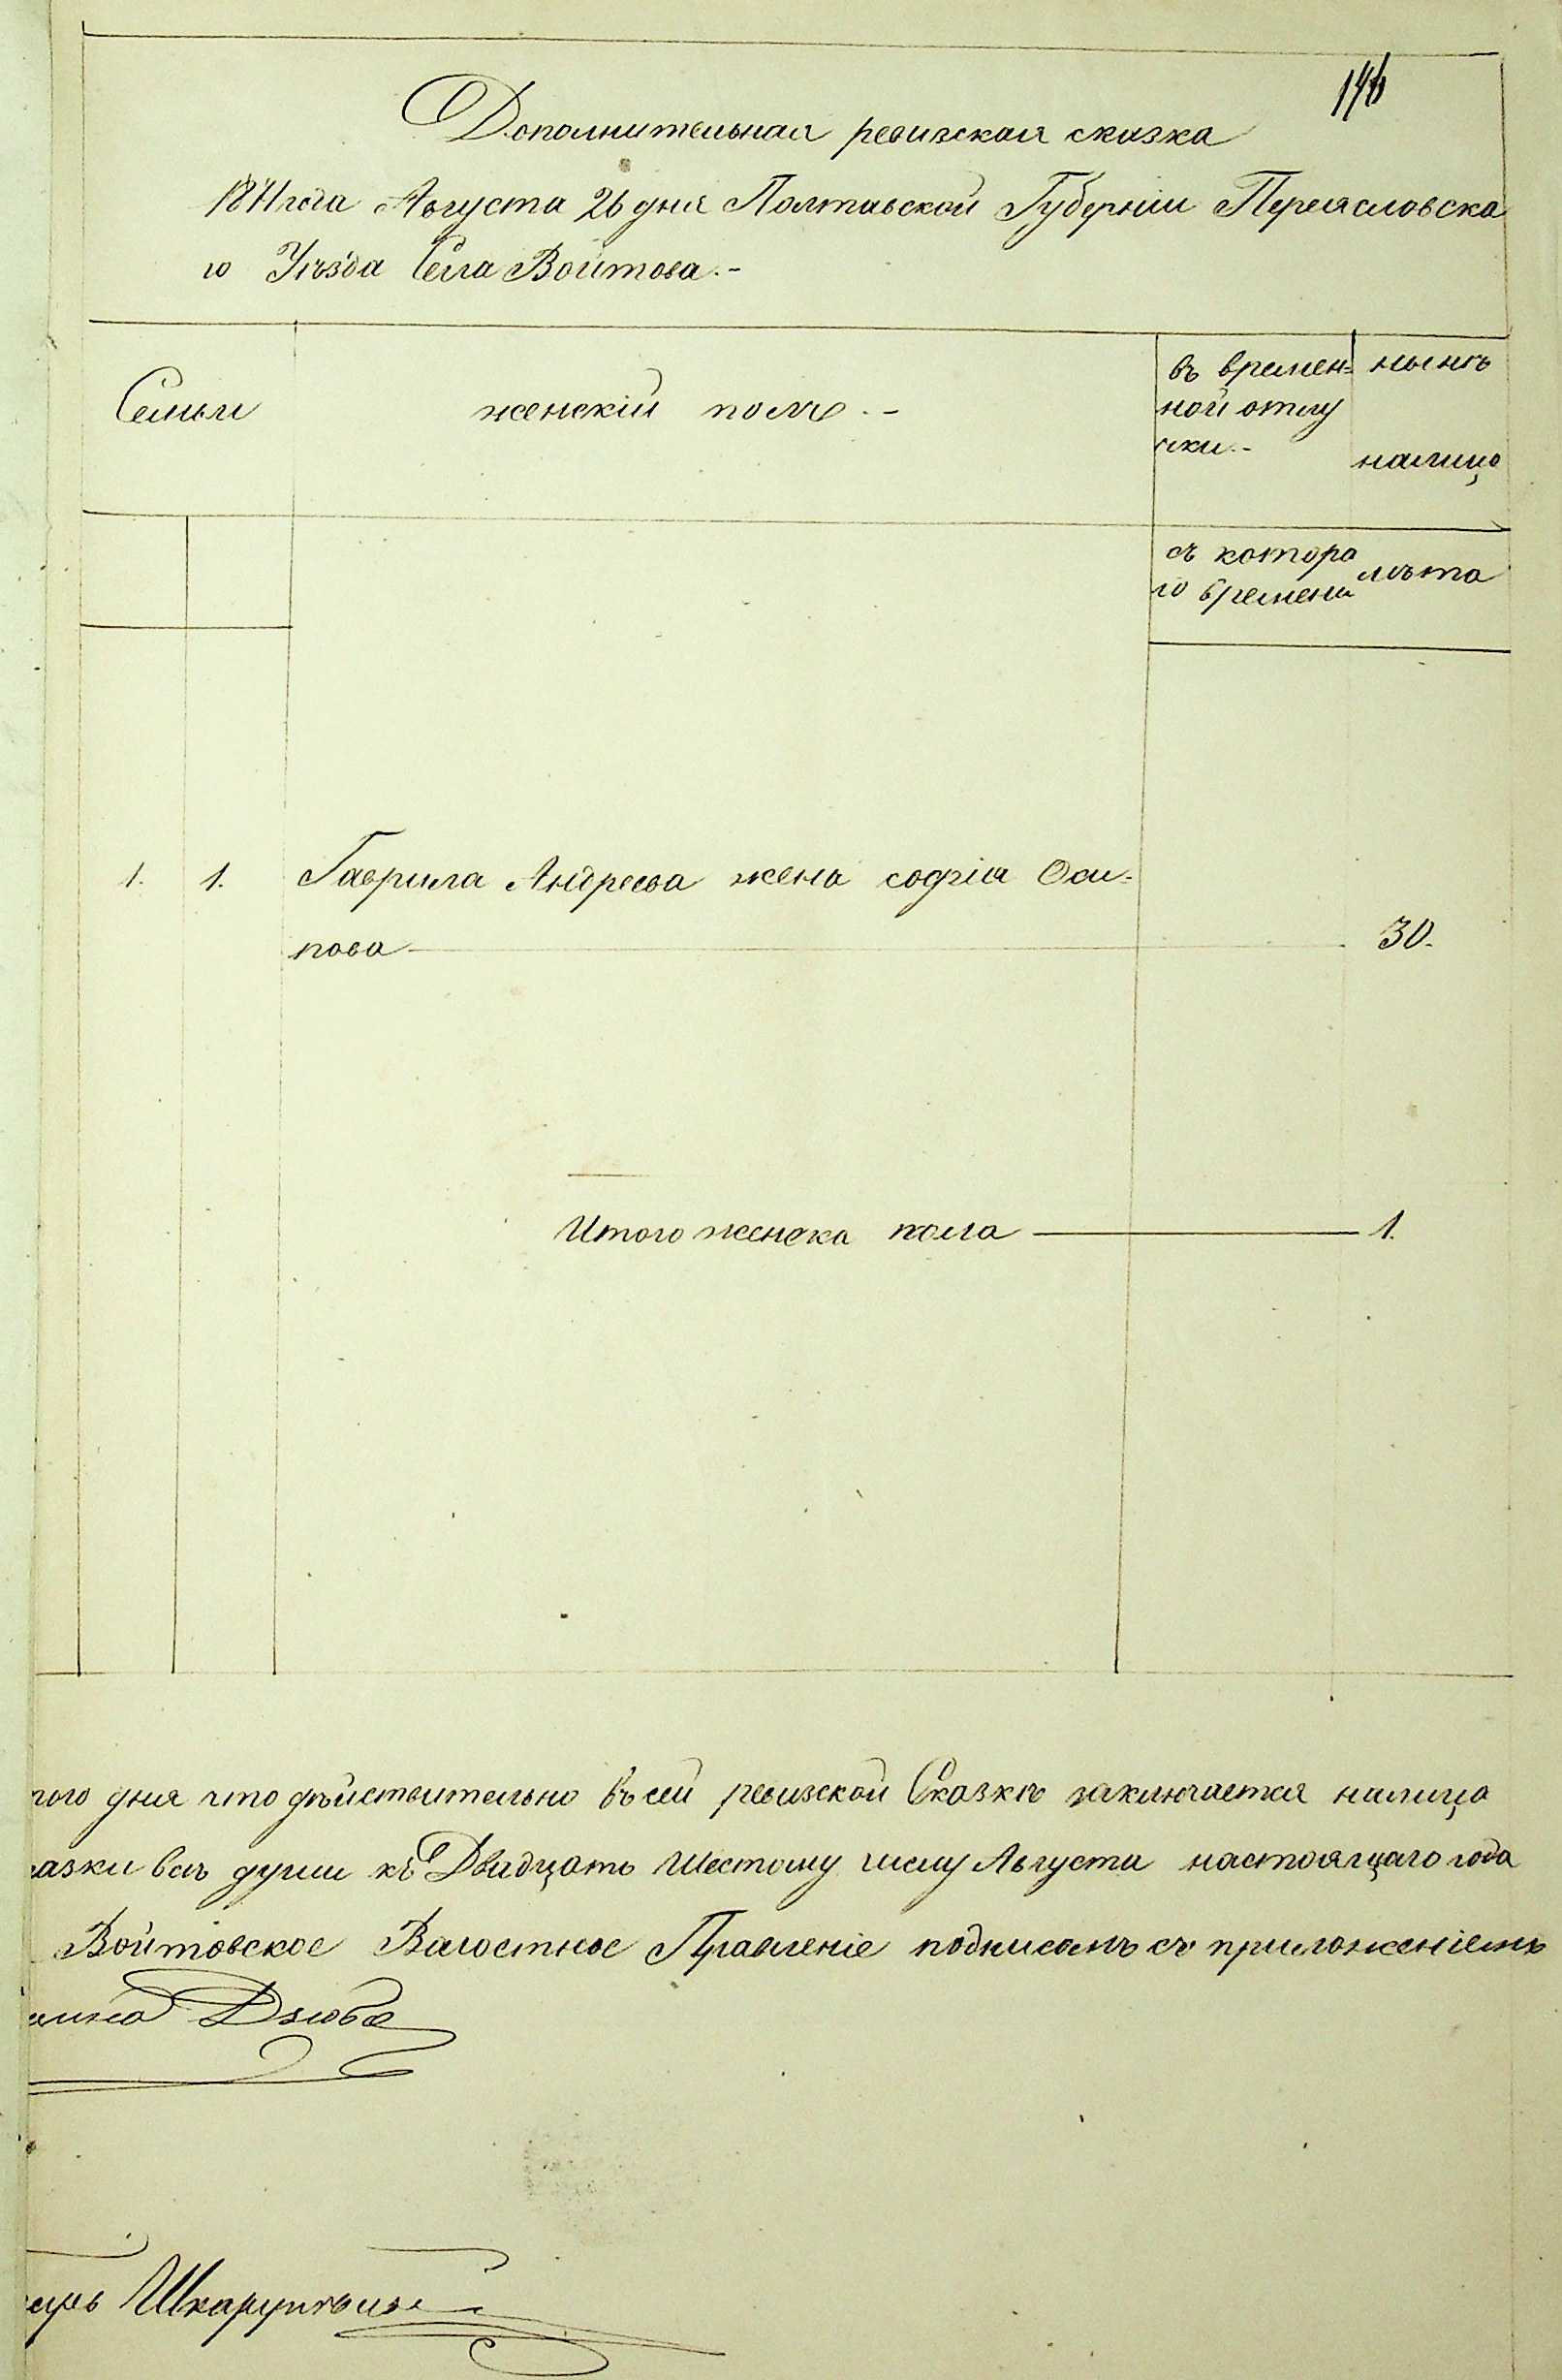 146
Дополнительная ревизская сказка
1871 года Августа 26 дня Полтавской Губерніи Переясловска
го Уѣзда Села Войтова.-
Семьи
женскій полъ.-
въ времен-
ной отлу
чки.-
нынѣ
налицо
съ которо
го времени
лѣта
1. 1. Гаврила Андреева жена софія Оси-
пова 30.
Итого женска пола 1.
того дня что дѣйствительно въ сей ревизской Сказкѣ заключается налицо
азки всѣ души къ Двадцать Шестому числу Августа настоящаго года
Войтовское Валостное Правленіе подписомъ съ приложеніемъ
Дзюба
арь